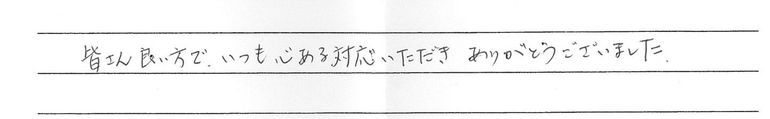 皆さん良い方で、いつも心ある対応いただき ありがとうございました。